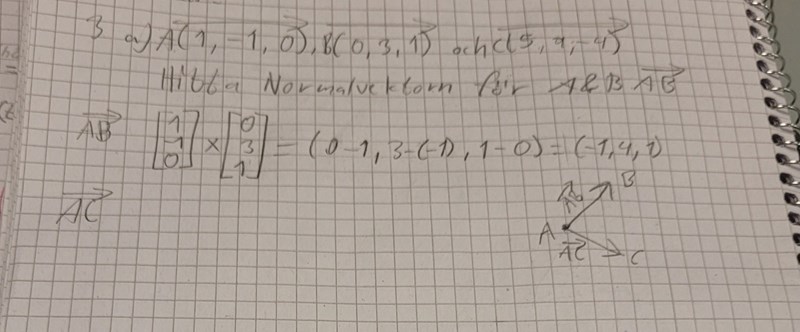 3 a) A(1, -1, 0), B(0, 3, 1) och C(5, 9, -4)
Hitta Normalvektorn för A&B AB
AB [1 -1 0] × [0 3 1] = (0-1, 3-(-1), 1-0) = (-1, 4, 1)
AC
B
AB
A
AC
C